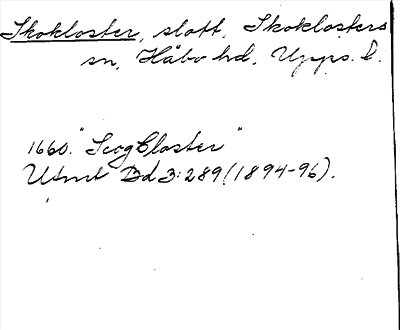 Skokloster, slott, Skoklosters
sn, Håbo hd, Upps. l.
1660. "ScogCloster"
Utmt Bd 3:289 (1894-96).